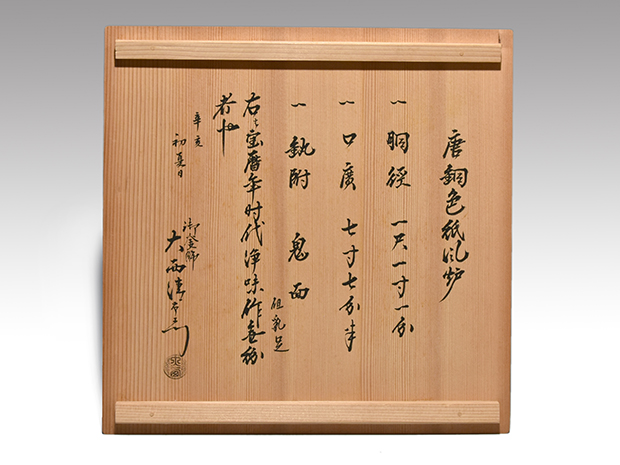 唐銅色紙風炉
一 胴径 一尺一寸一分
一 口廣 七寸七分半
一 釻附 鬼面
但乳足
右ハ宝暦年时代浄味作無紛
者也
辛亥
初夏日
御釜師
大西清右衛門